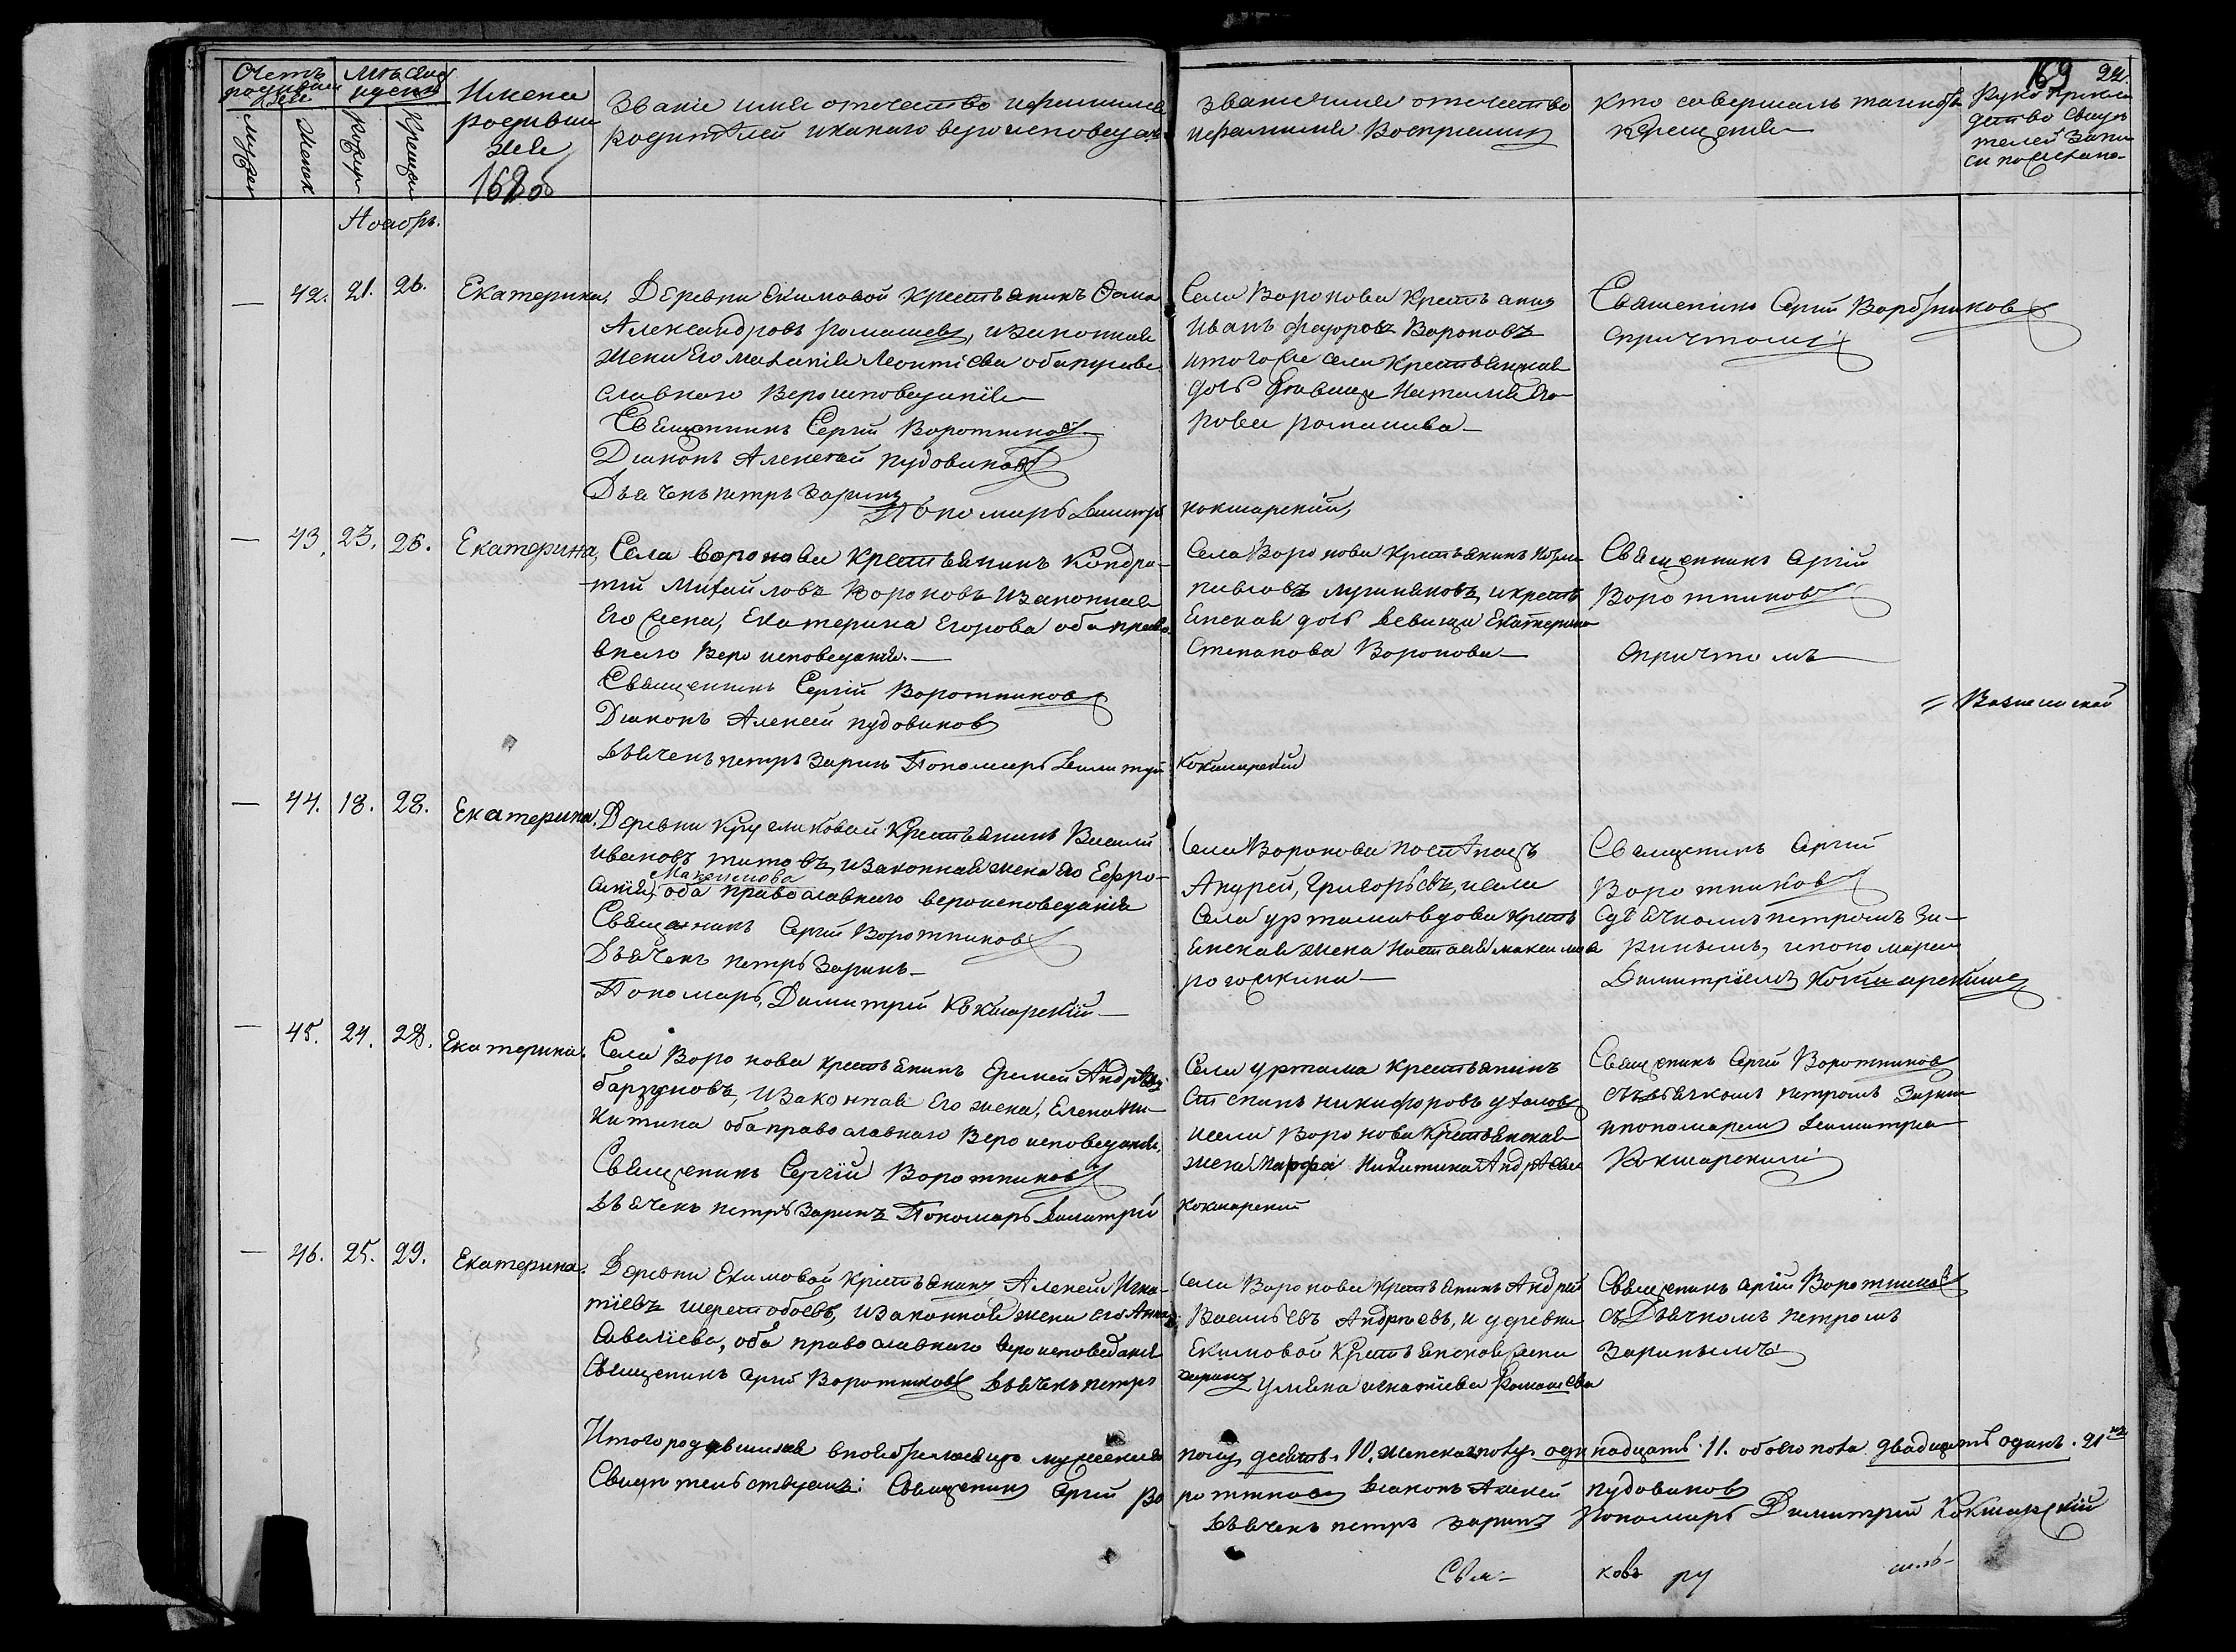 Счетъ родившихся
Мужес
Женск
Мѣсяцъ и день
Рожден
Крещен
Имена родивши
хся
168об
Званіе имя отечество и фамилія
Родителей и какаго вероисповедан
Званіе имя отечество
и фамилія Восприемни
Кто совершалъ таинство
Крещенія
169
22.
Руко прикла
дство свиде
телей запи
си по желанію
Ноябрь.
— 42. 21. 26. Екатерина,
Деревни Екимовой крестьянинъ Фома
Александровъ Ромашевъ, и законная
жена Его Маланія Леонтіева оба право
славнаго Вероисповеданія
Священникъ Сергій Воротниковъ
Діаконъ Алексей Пудовиковъ
Дьячекъ петръ Заринъ
Пономарь Димитрій Кокшарскій,
Села Воронова Крестьянинъ
Иванъ Федоровъ Вороновъ
и того же села Крестьянская
дочь девица Наталия
Ромашева
Священникъ Сергій Воротниковъ
с причтомъ
— 43, 23. 26. Екатерина,
Села Воронова Крестьянинъ Кондра-
тій Михайловъ Вороновъ и законная
Его жена, Екатерина Егорова оба право
внаго Вероисповеданія. —
Священникъ Сергій Воротниковъ
Діаконъ Алексей пудовиковъ
Дьячекъ петръ Заринъ Пономарь Димитрій Кокшарскій
Села Воронова Крестьянинъ
павловъ и кресть
янская дочь девица Екатерина
Степанова Воронова —
Священникъ Сергій
Воротниковъ
с причтомъ
— 44. 18. 28. Екатерина.
Деревни Кругликовой Крестьянинъ Василій
Ивановъ Титовъ, и законная жена его Ефро-
Максимова
синія, оба православнаго вероисповеданія
Священникъ Сергій Воротниковъ
Дьячекъ петръ Заринъ —
Пономарь, Димитрій Кокшарскій —
Села Воронова
Андрей, Григорьевъ, и
Села Уртама вдова кресть
янская жена Настасія Максимова
рогожкина —
Священникъ Сергій
Воротниковъ
с дьячкомъ петромъ За-
ринымъ, и пономарем
Димитріемъ Кокшарскимъ
— 45. 24. 28. Екатерина.
Села Воронова крестьянинъ Еремей Андрѣевъ
барзуновъ, и законная Его жена, Елена Ни-
китина оба православнаго Вероисповеданія.
Священникъ Сергій Воротниковъ
Дьячекъ петръ Заринъ Пономарь Димитрій Кокшарскій
Села Уртама крестьянинъ
Степанъ никифоровъ
и села Воронова Крестьянская
жена Марфа Никитина Андрѣева
Священникъ Сергій Воротниковъ
съ дьячкомъ петромъ Зарин
и пономарем Димитріе
Кокшарскимъ
— 46. 25. 29. Екатерина.
Деревни Екимовой Крестьянинъ Алексей Игна-
тіевъ Шерстобоевъ, и законная жена его Анна
Савеліева, оба православнаго вероисповеданія
Священникъ Сергій Воротниковъ Дьячекъ петръ Заринъ
Села Воронова Крестьянинъ Андрей
Васильевъ Андреевъ, и деревни
Екимовой Крестьянская жена
Ульяна игнатіева Ромашева
Священникъ Сергій Воротников
съ Дьячкомъ петромъ
Заринымъ
Итого родившихся в ноябре месяце мужеска
полу десять. 10. женска полу одинадцать. 11. обоего пола двадцать одинъ. 21
Свидетельствуемъ: Священникъ Сергій Воротников Діаконъ Алексей Пудовиковъ
Дьячекъ петръ Заринъ Пономарь Димитрій Кокшарскій
Свя- ковъ ру